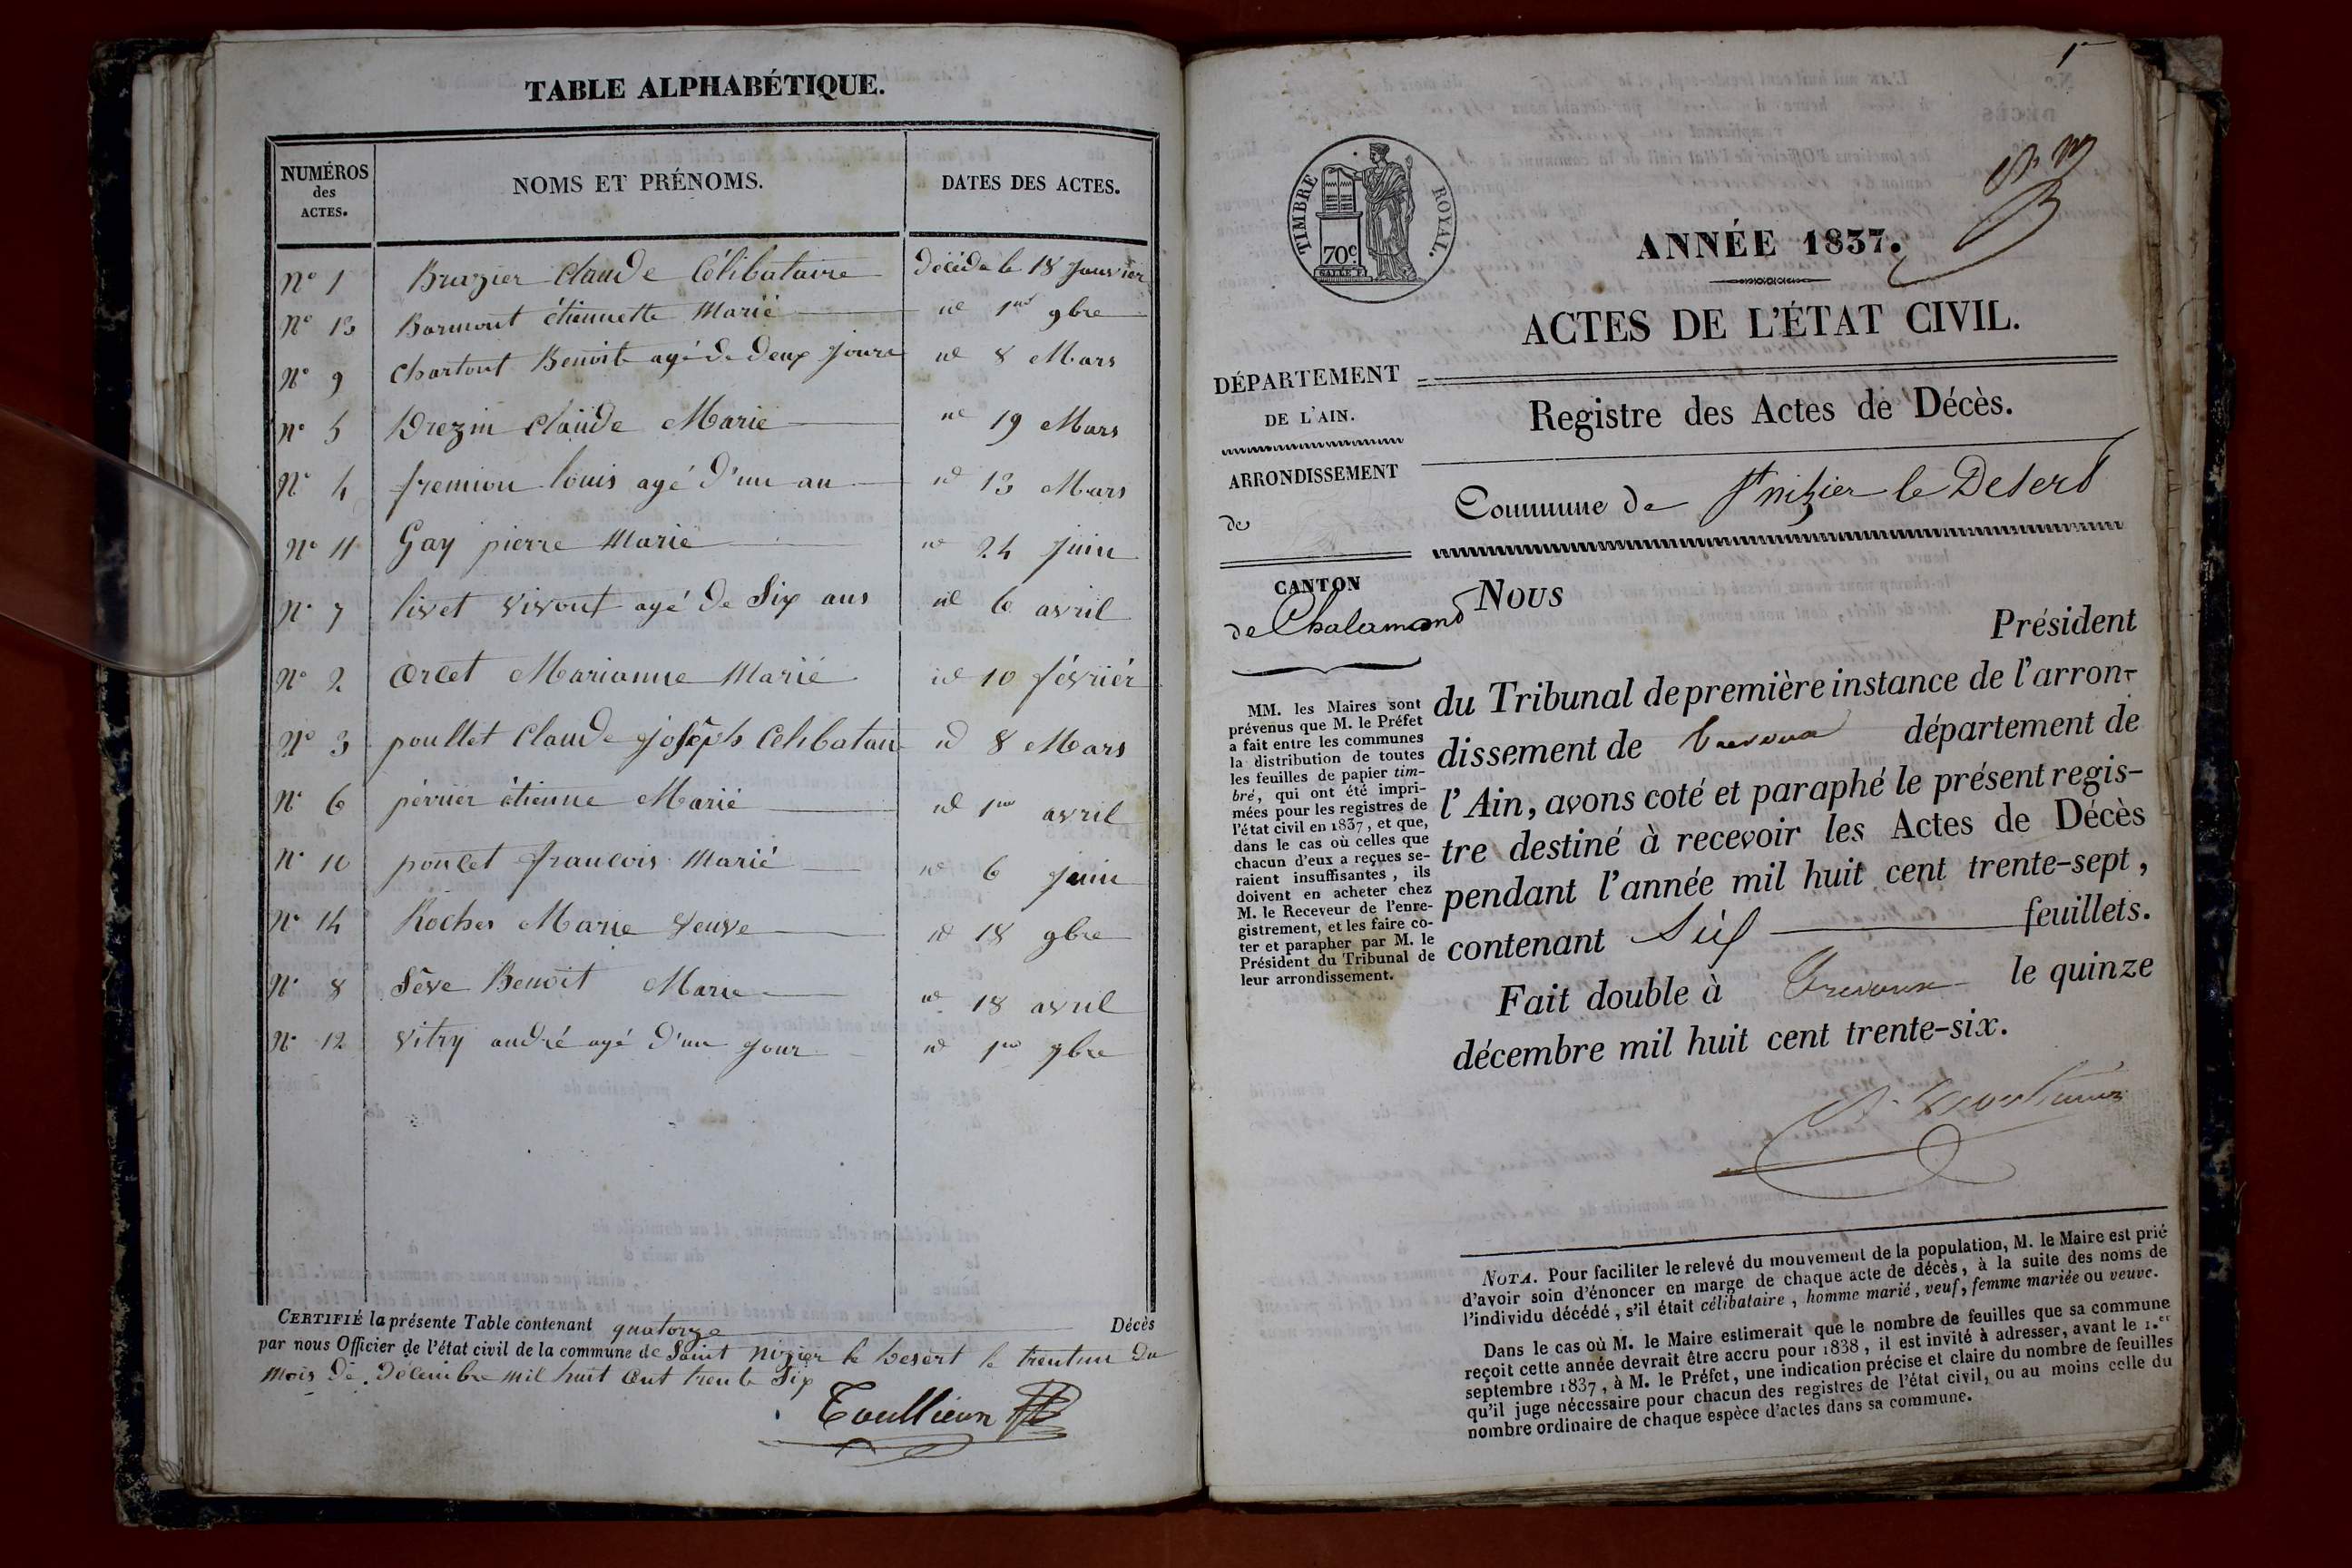 TABLE ALPHABÉTIQUE.
NUMÉROS
des
ACTES.
NOMS ET PRÉNOMS.
DATES DES ACTES.
N° 1 Brazier Claude Célibataire décédé le 18 Janvier
N° 13 Barmont étiennette Marié id 1er 9bre
N° 9 Chartout Benoit agé de deux jours id 8 Mars
N° 5 Drezin Claude Marie id 19 Mars
N° 4 fremion louis agé d'un an id 13 Mars
N° 11 Gay pierre Marié id 24 juin
N° 7 livet agé de Six ans id 6 avril
N° 2 Orcet Marianne Marié id 10 février
N° 3 poullet Claude joseph Celibatair id 8 Mars
N° 6 perrier étienne Marié id 1er avril
N° 10 poncet françois Marié id 6 juin
N° 14 Rocher Marie Veuve id 18 9bre
N° 8 Sève Benoit Marie id 18 avril
N° 12 Vitry andré agé d'un jour id 1er 9bre
CERTIFIÉ la présente Table contenant quatorze Décès
par nous Officier de l'état civil de la commune de Saint nizier le Desert le trentun du
mois de décembre mil huit Cent trente Six
1er
TIMBRE ROYAL.
70c.
ANNÉE 1837.
ACTES DE L'ÉTAT CIVIL.
DÉPARTEMENT
DE L'AIN.
ARRONDISSEMENT
de
CANTON
de Chalamond
MM. les Maires sont
prévenus que M. le Préfet
a fait entre les communes
la distribution de toutes
les feuilles de papier tim-
bré, qui ont été impri-
mées pour les registres de
l'état civil en 1837, et que,
dans le cas où celles que
chacun d'eux a reçues se-
raient insuffisantes, ils
doivent en acheter chez
M. le Receveur de l'enre-
gistrement, et les faire co-
ter et parapher par M. le
Président du Tribunal de
leur arrondissement.
Registre des Actes de Décès.
Commune de St nizier le Desert
Nous
Président
du Tribunal de première instance de l'arron-
dissement de trevoux département de
l'Ain, avons coté et paraphé le présent regis-
tre destiné à recevoir les Actes de Décès
pendant l'année mil huit cent trente-sept,
contenant Six feuillets.
Fait double à Trevoux le quinze
décembre mil huit cent trente-six.
NOTA. Pour faciliter le relevé du mouvement de la population, M. le Maire est prié
d'avoir soin d'énoncer en marge de chaque acte de décès, à la suite des noms de
l'individu décédé, s'il était célibataire, homme marié, veuf, femme mariée ou veuve.
Dans le cas où M. le Maire estimerait que le nombre de feuilles que sa commune
reçoit cette année devrait être accru pour 1838, il est invité à adresser, avant le 1.er
septembre 1837, à M. le Préfet, une indication précise et claire du nombre de feuilles
qu'il juge nécessaire pour chacun des registres de l'état civil, ou au moins celle du
nombre ordinaire de chaque espèce d'actes dans sa commune.